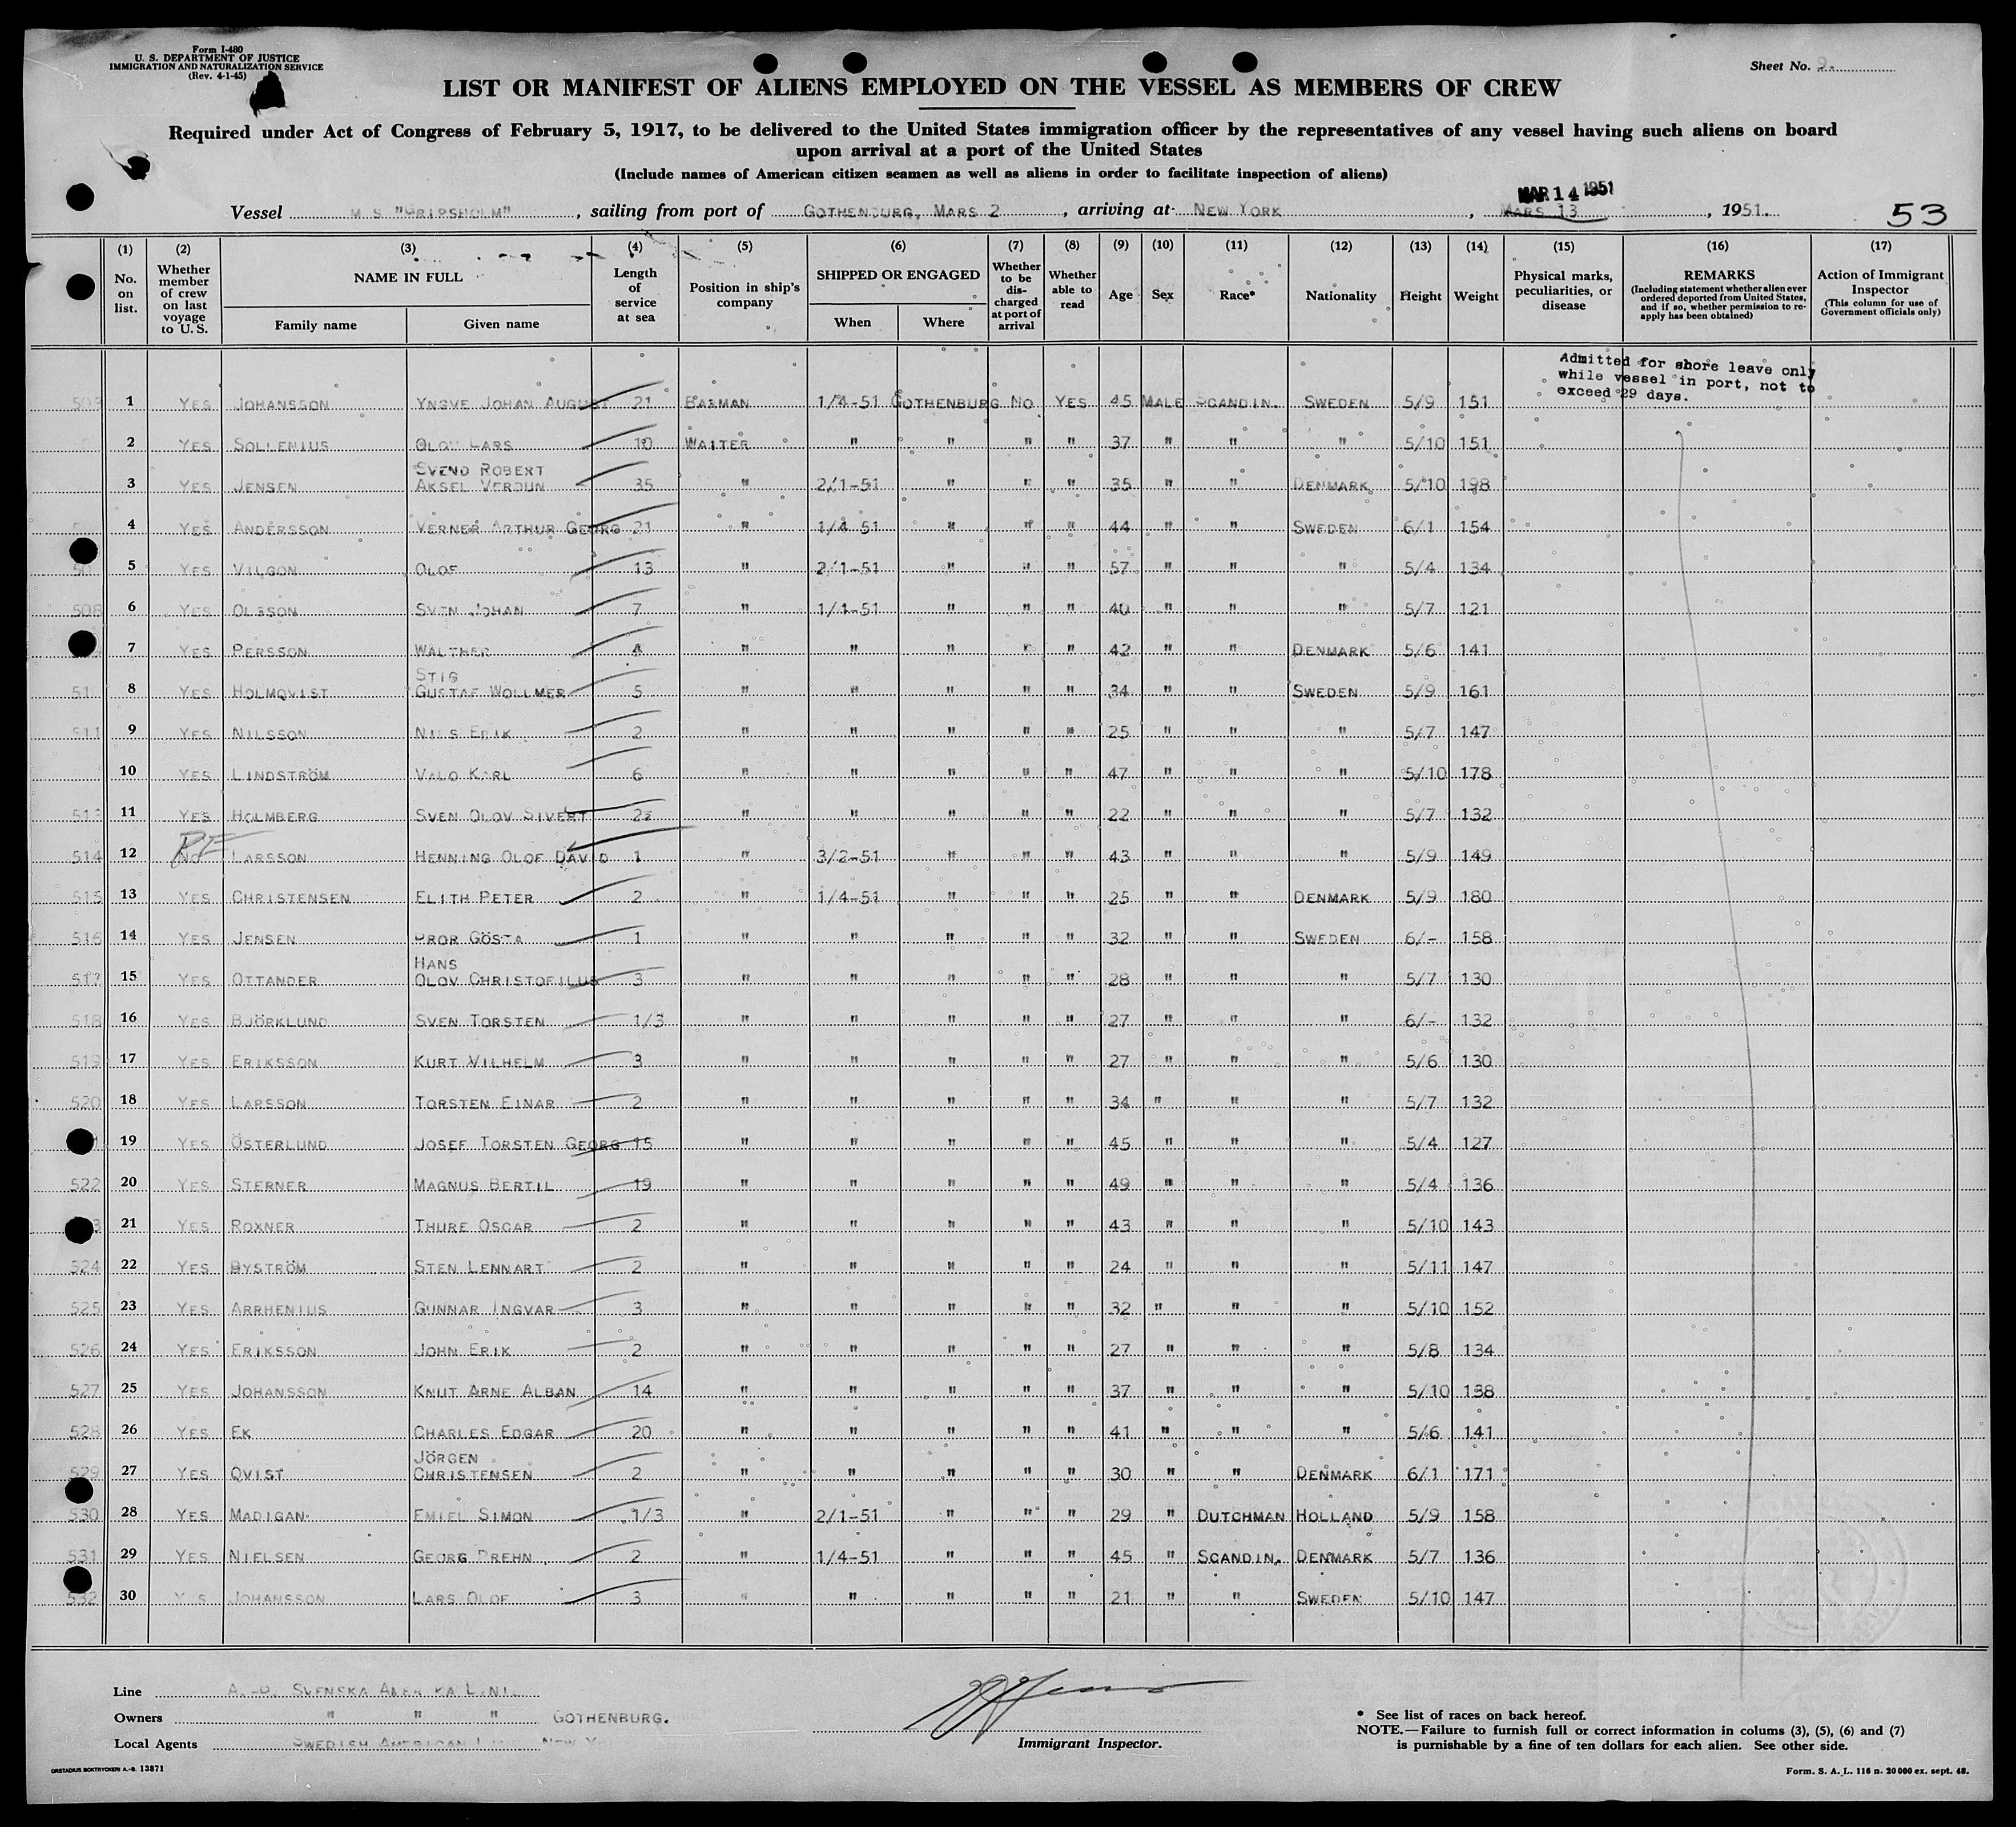 Form I-480
U. S. DEPARTMENT OF JUSTICE
IMMIGRATION AND NATURALIZATION SERVICE
(Rev. 4-1-45)
Sheet No. 9.
LIST OR MANIFEST OF ALIENS EMPLOYED ON THE VESSEL AS MEMBERS OF CREW
Required under Act of Congress of February 5, 1917, to be delivered to the United States immigration officer by the representatives of any vessel having such aliens on board
upon arrival at a port of the United States
(Include names of American citizen seamen as well as aliens in order to facilitate inspection of aliens)
MAR 14 1951
Vessel M.S. "GRIPSHOLM", sailing from port of GOTHENBURG, MARS 2, arriving at NEW YORK, MARS 13, 1951. 53
(1) (2) (3) (4) (5) (6) (7) (8) (9) (10) (11) (12) (13) (14) (15) (16) (17)
No. on list. Whether member of crew on last voyage to U. S. NAME IN FULL Family name Given name Length of service at sea Position in ship's company SHIPPED OR ENGAGED When Where Whether to be discharged at port of arrival Whether able to read Age Sex Race* Nationality Height Weight Physical marks, peculiarities, or disease REMARKS (Including statement whether alien ever ordered deported from United States, and if so, whether permission to reapply has been obtained) Action of Immigrant Inspector (This column for use of Government officials only)
Admitted for shore leave only
while vessel in port, not to
exceed 29 days.
503 1 YES JOHANSSON YNGVE JOHAN AUGUST 21 BARMAN 1/4-51 GOTHENBURG NO YES 45 MALE SCANDIN. SWEDEN 5/9 151
2 YES SOLLENIUS OLOV LARS 10 WAITER " " " " 37 " " " 5/10 151
SVEND ROBERT
3 YES JENSEN AKSEL VERDUN 35 " 2/1-51 " " " 35 " " DENMARK 5/10 198
4 YES ANDERSSON VERNER ARTHUR GEORG 21 " 1/4-51 " " " 44 " " SWEDEN 6/1 154
5 YES VILGON OLOF 13 " 2/1-51 " " " 57 " " " 5/4 134
508 6 YES OLSSON SVEN JOHAN 7 " 1/1-51 " " " 40 " " " 5/7 121
7 YES PERSSON WALTHER 4 " " " " " 42 " " DENMARK 5/6 141
STIG
51 8 YES HOLMQVIST GUSTAF WOLLMER 5 " " " " " 34 " " SWEDEN 5/9 161
511 9 YES NILSSON NILS ERIK 2 " " " " " 25 " " " 5/7 147
10 YES LINDSTRÖM VALO KARL 6 " " " " " 47 " " " 5/10 178
513 11 YES HOLMBERG SVEN OLOV SIVERT " " " " " 22 " " " 5/7 132
514 12 NO LARSSON HENNING OLOF DAVID 1 " 3/2-51 " " " 43 " " " 5/9 149
515 13 YES CHRISTENSEN ELITH PETER 2 " 1/4-51 " " " 25 " " DENMARK 5/9 180
516 14 YES JENSEN BROR GÖSTA 1 " " " " " 32 " " SWEDEN 6/- 158
HANS
517 15 YES OTTANDER OLOV CHRISTOFILUS 3 " " " " " 28 " " " 5/7 130
518 16 YES BJÖRKLUND SVEN TORSTEN 1/3 " " " " " 27 " " " 6/- 132
519 17 YES ERIKSSON KURT VILHELM 3 " " " " " 27 " " " 5/6 130
520 18 YES LARSSON TORSTEN EINAR 2 " " " " " 34 " " " 5/7 132
19 YES ÖSTERLUND JOSEF TORSTEN GEORG 15 " " " " " 45 " " " 5/4 127
522 20 YES STERNER MAGNUS BERTIL 19 " " " " " 49 " " " 5/4 136
21 YES ROXNER THURE OSCAR 2 " " " " " 43 " " " 5/10 143
524 22 YES BYSTRÖM STEN LENNART 2 " " " " " 24 " " " 5/11 147
525 23 YES ARRHENIUS GUNNAR INGVAR 3 " " " " " 32 " " " 5/10 152
526 24 YES ERIKSSON JOHN ERIK 2 " " " " " 27 " " " 5/8 134
527 25 YES JOHANSSON KNUT ARNE ALBAN 14 " " " " " 37 " " " 5/10 138
528 26 YES EK CHARLES EDGAR 20 " " " " " 41 " " " 5/6 141
JÖRGEN
529 27 YES QVIST CHRISTENSEN 2 " " " " " 30 " " DENMARK 6/1 171
530 28 YES MADIGAN EMIEL SIMON 1/3 " 2/1-51 " " " 29 " DUTCHMAN HOLLAND 5/9 158
531 29 YES NIELSEN GEORG PREHN 2 " 1/4-51 " " " 45 " SCANDIN. DENMARK 5/7 136
532 30 YES JOHANSSON LARS OLOF 3 " " " " " 21 " " SWEDEN 5/10 147
Line A.-B. SVENSKA AMERIKA LINIE
Owners " " " GOTHENBURG.
Local Agents SWEDISH AMERICAN LINE NEW Y
Immigrant Inspector.
* See list of races on back hereof.
NOTE.—Failure to furnish full or correct information in colums (3), (5), (6) and (7)
is purnishable by a fine of ten dollars for each alien. See other side.
ORSTADIUS BOKTRYCKERI A.-B. 13871
Form. S. A. L. 116 n. 20 000 ex. sept. 48.